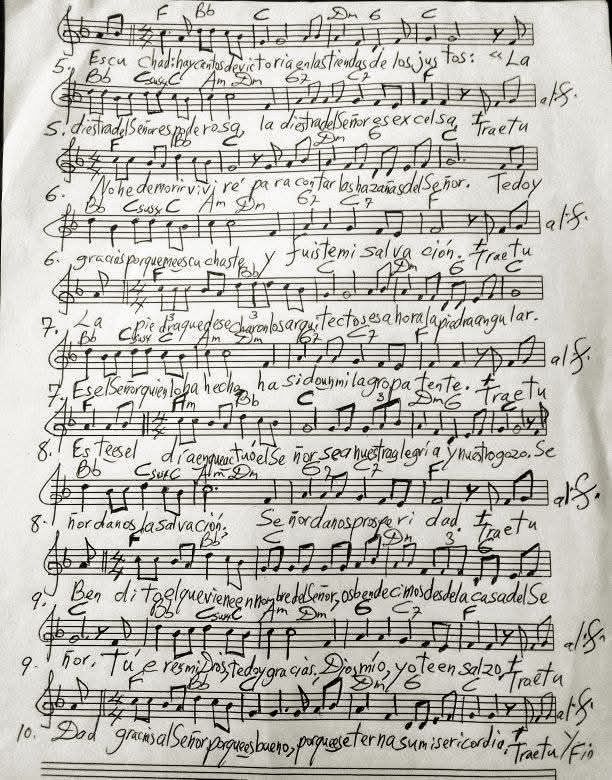 F Bb C Dm G C
5. Escu chad: hay cantos de victoria en las tiendas de los jus tos: "La
Bb Csus4 C Am Dm G7 C7 F
al 𝄋.
5. diestra del Señor es pode rosa, la diestra del Señor es excelsa. Trae tu
F Bb C Dm G C
6. No he de morir vivi ré para contar las hazañas del Señor. Te doy
Bb Csus4 C Am Dm G7 C7 F
al 𝄋.
6. gracias porque me escu chaste y fuiste mi salva ción. Trae tu
F 3 3 Bb C Dm G C
7. La pie dra que dese charon los arqui tectos es ahora la piedra angular.
Bb Csus4 C Am Dm G7 C7 F
al 𝄋.
7. Es el Señor quien lo ha hecho, ha sido un milagro pa tente. Trae tu
F Am Bb C 3 Dm G C
8. Es te es el día en que actuó el Se ñor sea nuestra alegría y nuestro gozo. Se
Bb Csus4 C Am Dm G7 C7 F
al 𝄋.
8. ñor danos la salvación. Se ñor danos prospe ri dad. Trae tu
F Bb C Dm 3 G
9. Ben dito el que viene en nombre del Señor, os bendecimos desde la casa del Se
C Bb Csus4 C Am Dm G C7 F
al 𝄋.
9. ñor. Tú e res mi Dios, te doy gracias. Dios mío, yo te en salzo. Trae tu
F Bb C Dm G C F
al 𝄋.
10. Dad gracias al Señor porque es bueno, porque es eterna su misericordia. Trae tu y Fin